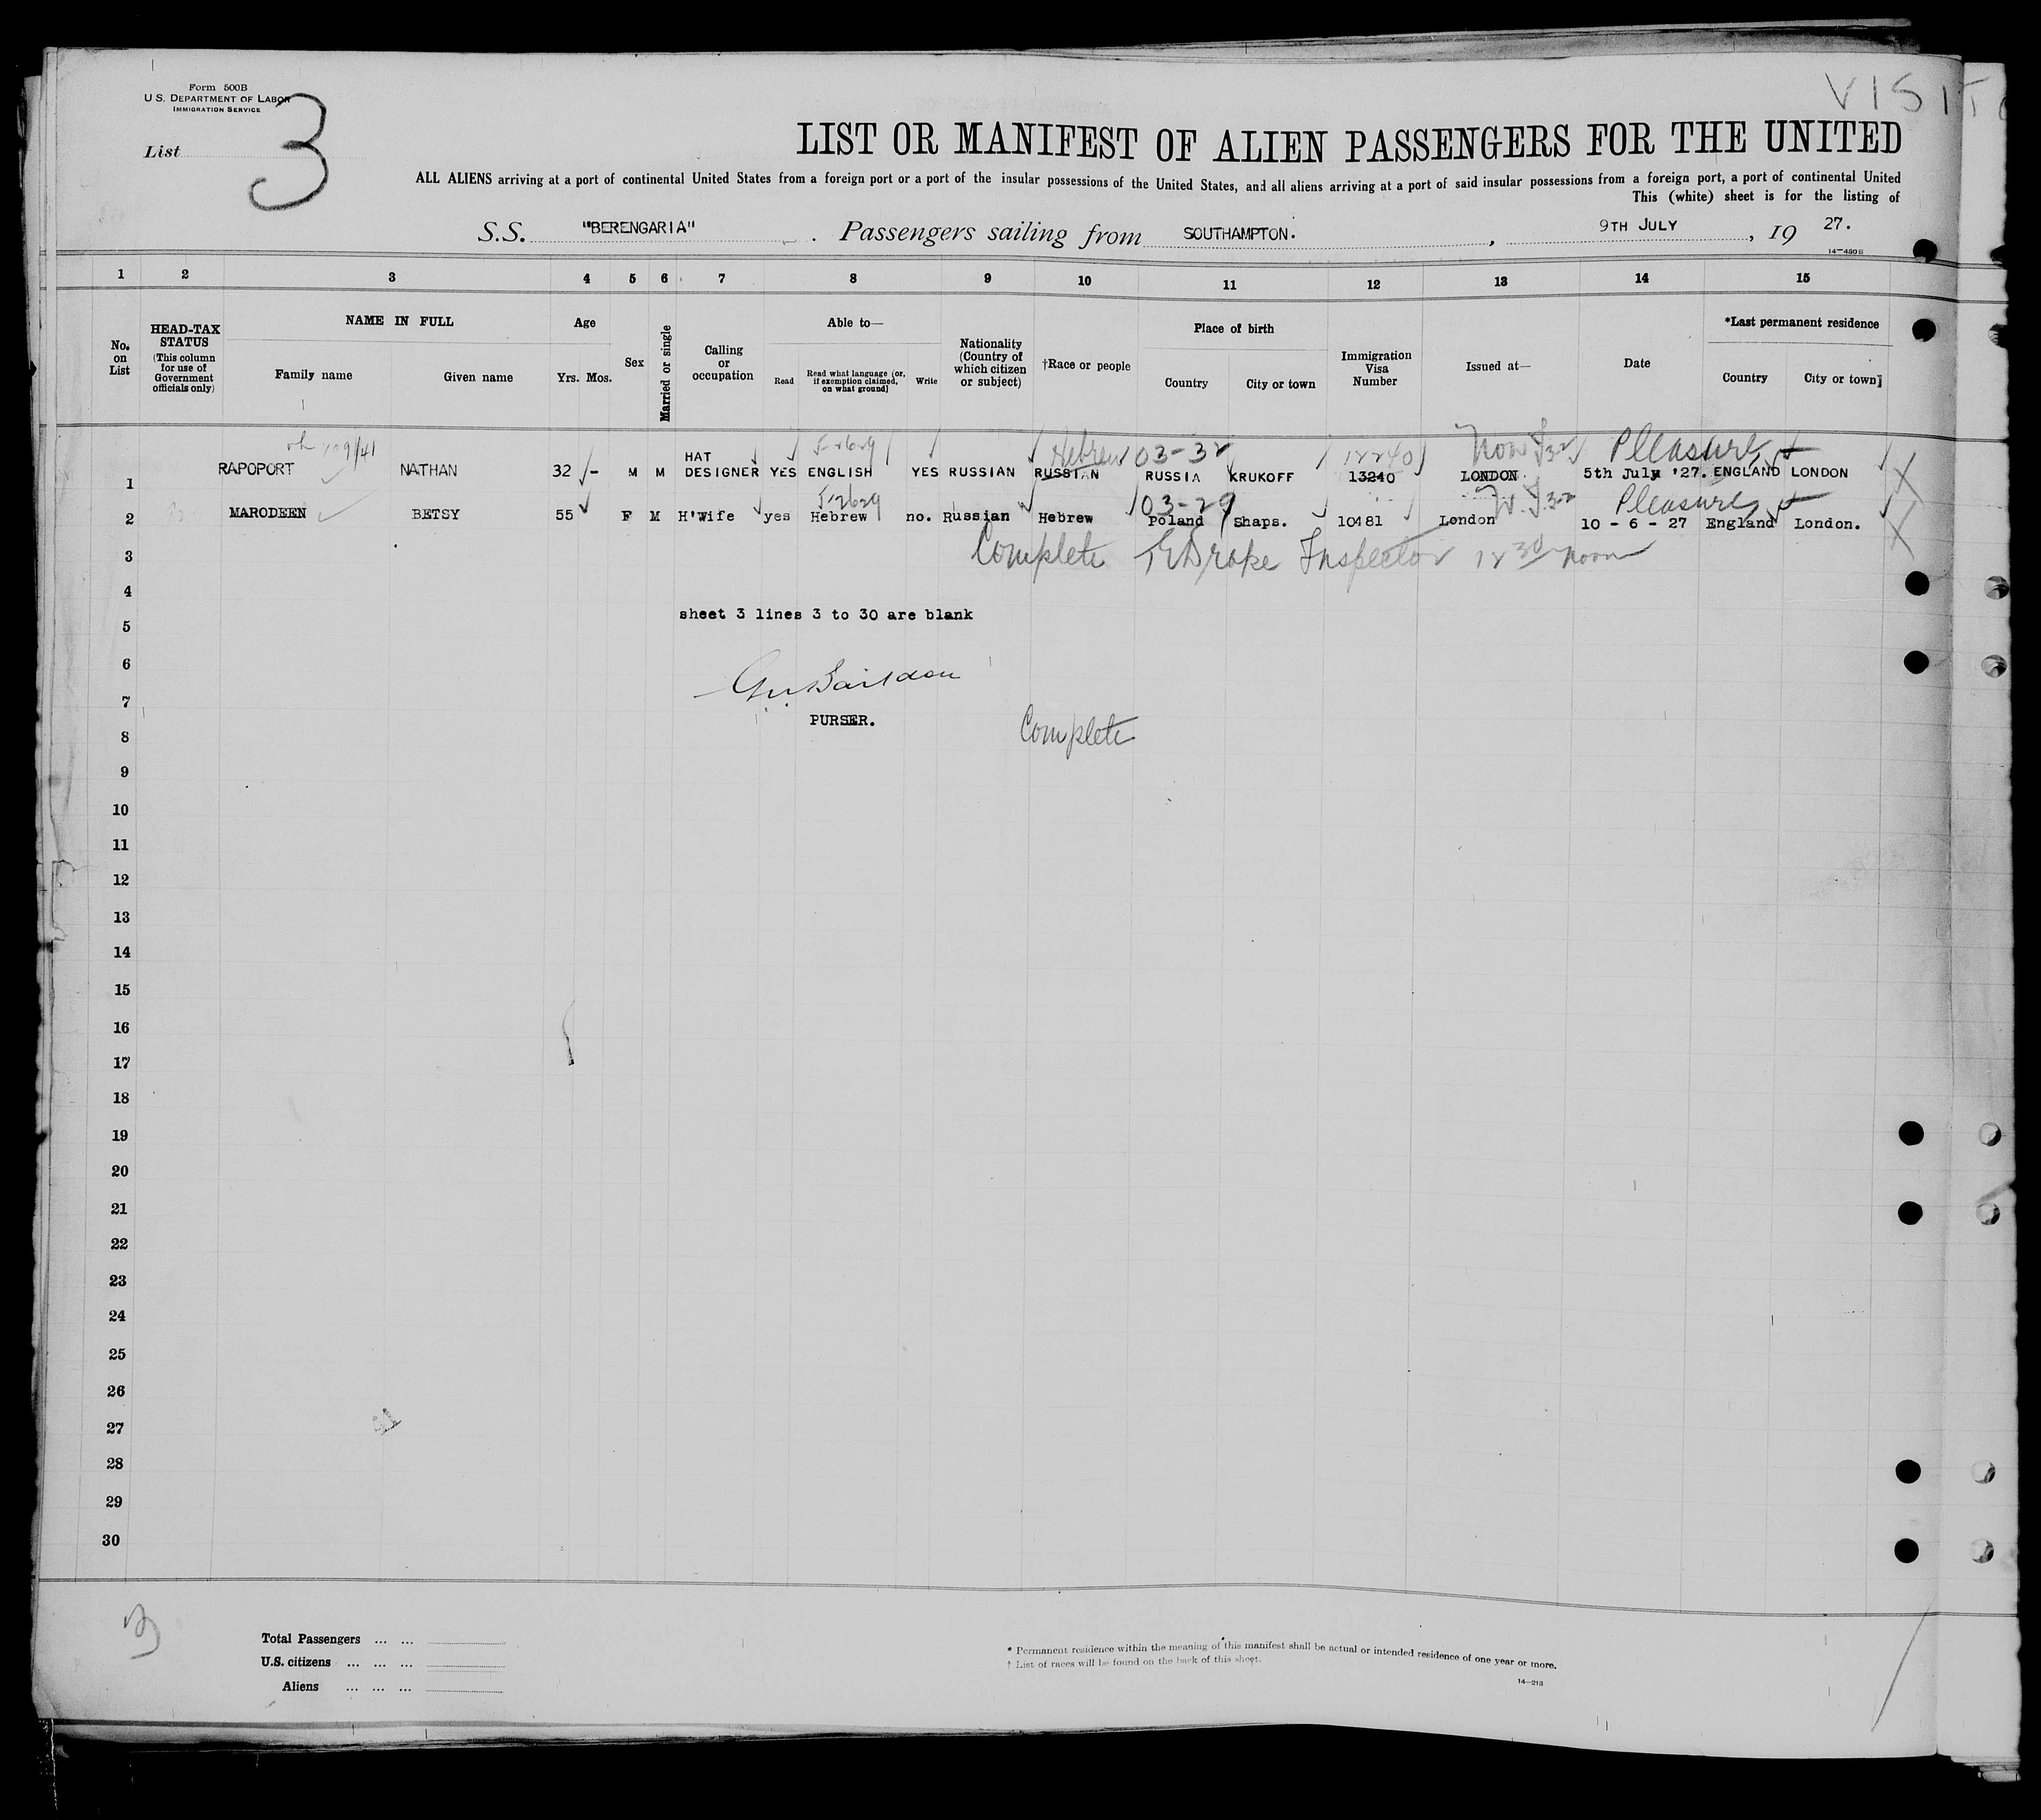 VISIT
Form 500B
U.S. DEPARTMENT OF LABOR
IMMIGRATION SERVICE
List 3
LIST OR MANIFEST OF ALIEN PASSENGERS FOR THE UNITED
ALL ALIENS arriving at a port of continental United States from a foreign port or a port of the insular possessions of the United States, and all aliens arriving at a port of said insular possessions from a foreign port, a port of continental United
This (white) sheet is for the listing of
S.S. "BERENGARIA" . Passengers sailing from SOUTHAMPTON. , 9TH JULY , 19 27.
14—450 B
1 2 3 4 5 6 7 8 9 10 11 12 13 14 15
No. on List
HEAD-TAX STATUS
(This column for use of Government officials only)
NAME IN FULL
Family name Given name
Age
Yrs. Mos.
Sex
Married or single
Calling or occupation
Able to—
Read
Read what language (or, if exemption claimed, on what ground)
Write
Nationality (Country of which citizen or subject)
†Race or people
Place of birth
Country City or town
Immigration Visa Number
Issued at—
Date
*Last permanent residence
Country City or town
Hebrew 03-32 Pleasure
1 RAPOPORT NATHAN 32 - M M HAT DESIGNER YES ENGLISH YES RUSSIAN RUSSIAN RUSSIA KRUKOFF 13240 LONDON 5th July '27. ENGLAND LONDON
03-29 Pleasure
2 MARODEEN BETSY 55 F M H'Wife yes Hebrew no. Russian Hebrew Poland Shaps. 10481 London 10 - 6 - 27 England London.
3 Complete Inspector 12 30 noon
4
sheet 3 lines 3 to 30 are blank
5
6
7
PURSER.
Complete
8
9
10
11
12
13
14
15
16
17
18
19
20
21
22
23
24
25
26
27
28
29
30
Total Passengers ... ...
U.S. citizens ... ... ...
Aliens ... ... ...
* Permanent residence within the meaning of this manifest shall be actual or intended residence of one year or more.
† List of races will be found on the back of this sheet.
14—213